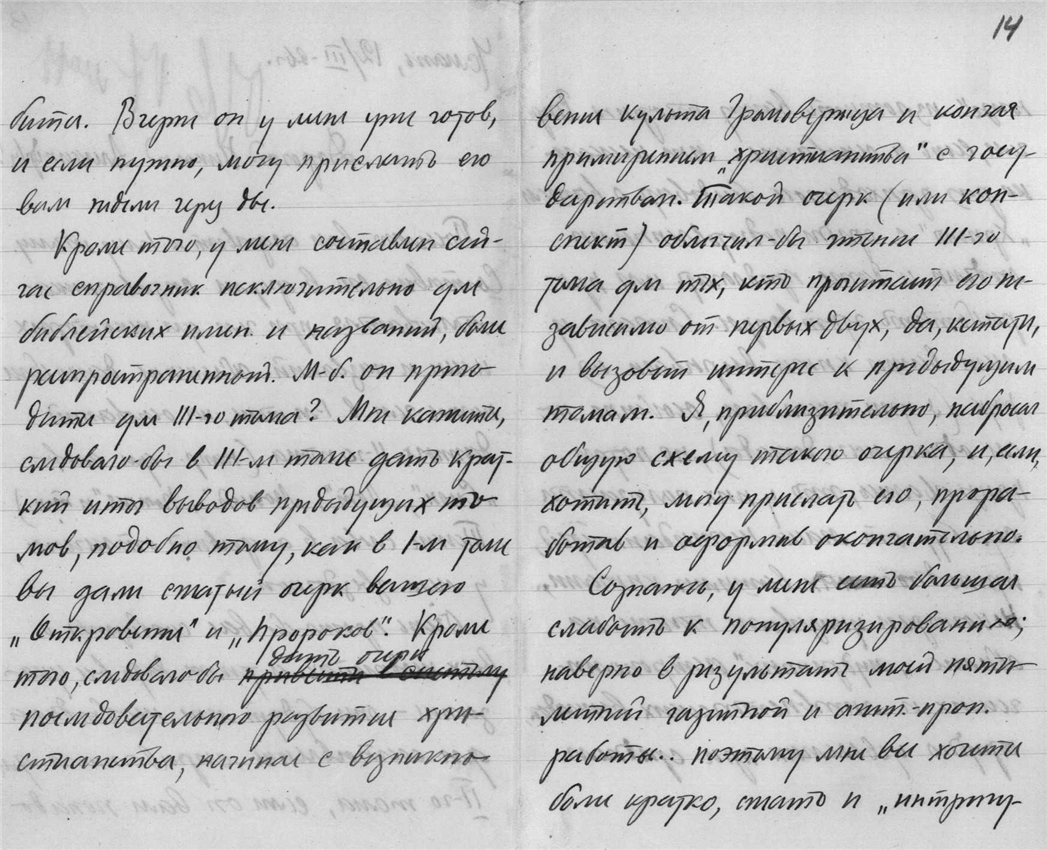 14
бита. Вчерне он у меня уже готов,
и если нужно, могу прислать его
вам недели через две.
Кроме того, у меня составлен сей-
час справочник исключительно для
библейских имен и названий, более
распространенной. М-б. он приго-
дится для III-го тома? Мне кажется,
следовало-бы в III-м томе дать крат-
кий итог выводов предыдущих то-
мов, подобно тому, как в I-м томе
вы дали сжатый очерк вашего
„Откровения" и „Пророков". Кроме
того, следовало бы дать очерк
последовательного развития хри-
стианства, начиная с возникно-
вения культа Громовержца и кончая
примирением „христианства" с госу-
дарством. Такой очерк (или кон-
спект) облегчил-бы чтение III-го
тома для тех, кто прочитает его не-
зависимо от первых двух, да, кстати,
и вызовет интерес к предыдущим
томам. Я, приблизительно, набросал
общую схему такого очерка, и, если,
хотите, могу прислать его, прора-
ботав и оформив окончательно.
Сознаюсь, у меня есть большая
слабость к популяризированию;
наверно в результате моей пяти-
летней газетной и агит.-проп.
работы.. Поэтому мне все хочется
более кратко, сжато и „интригу-